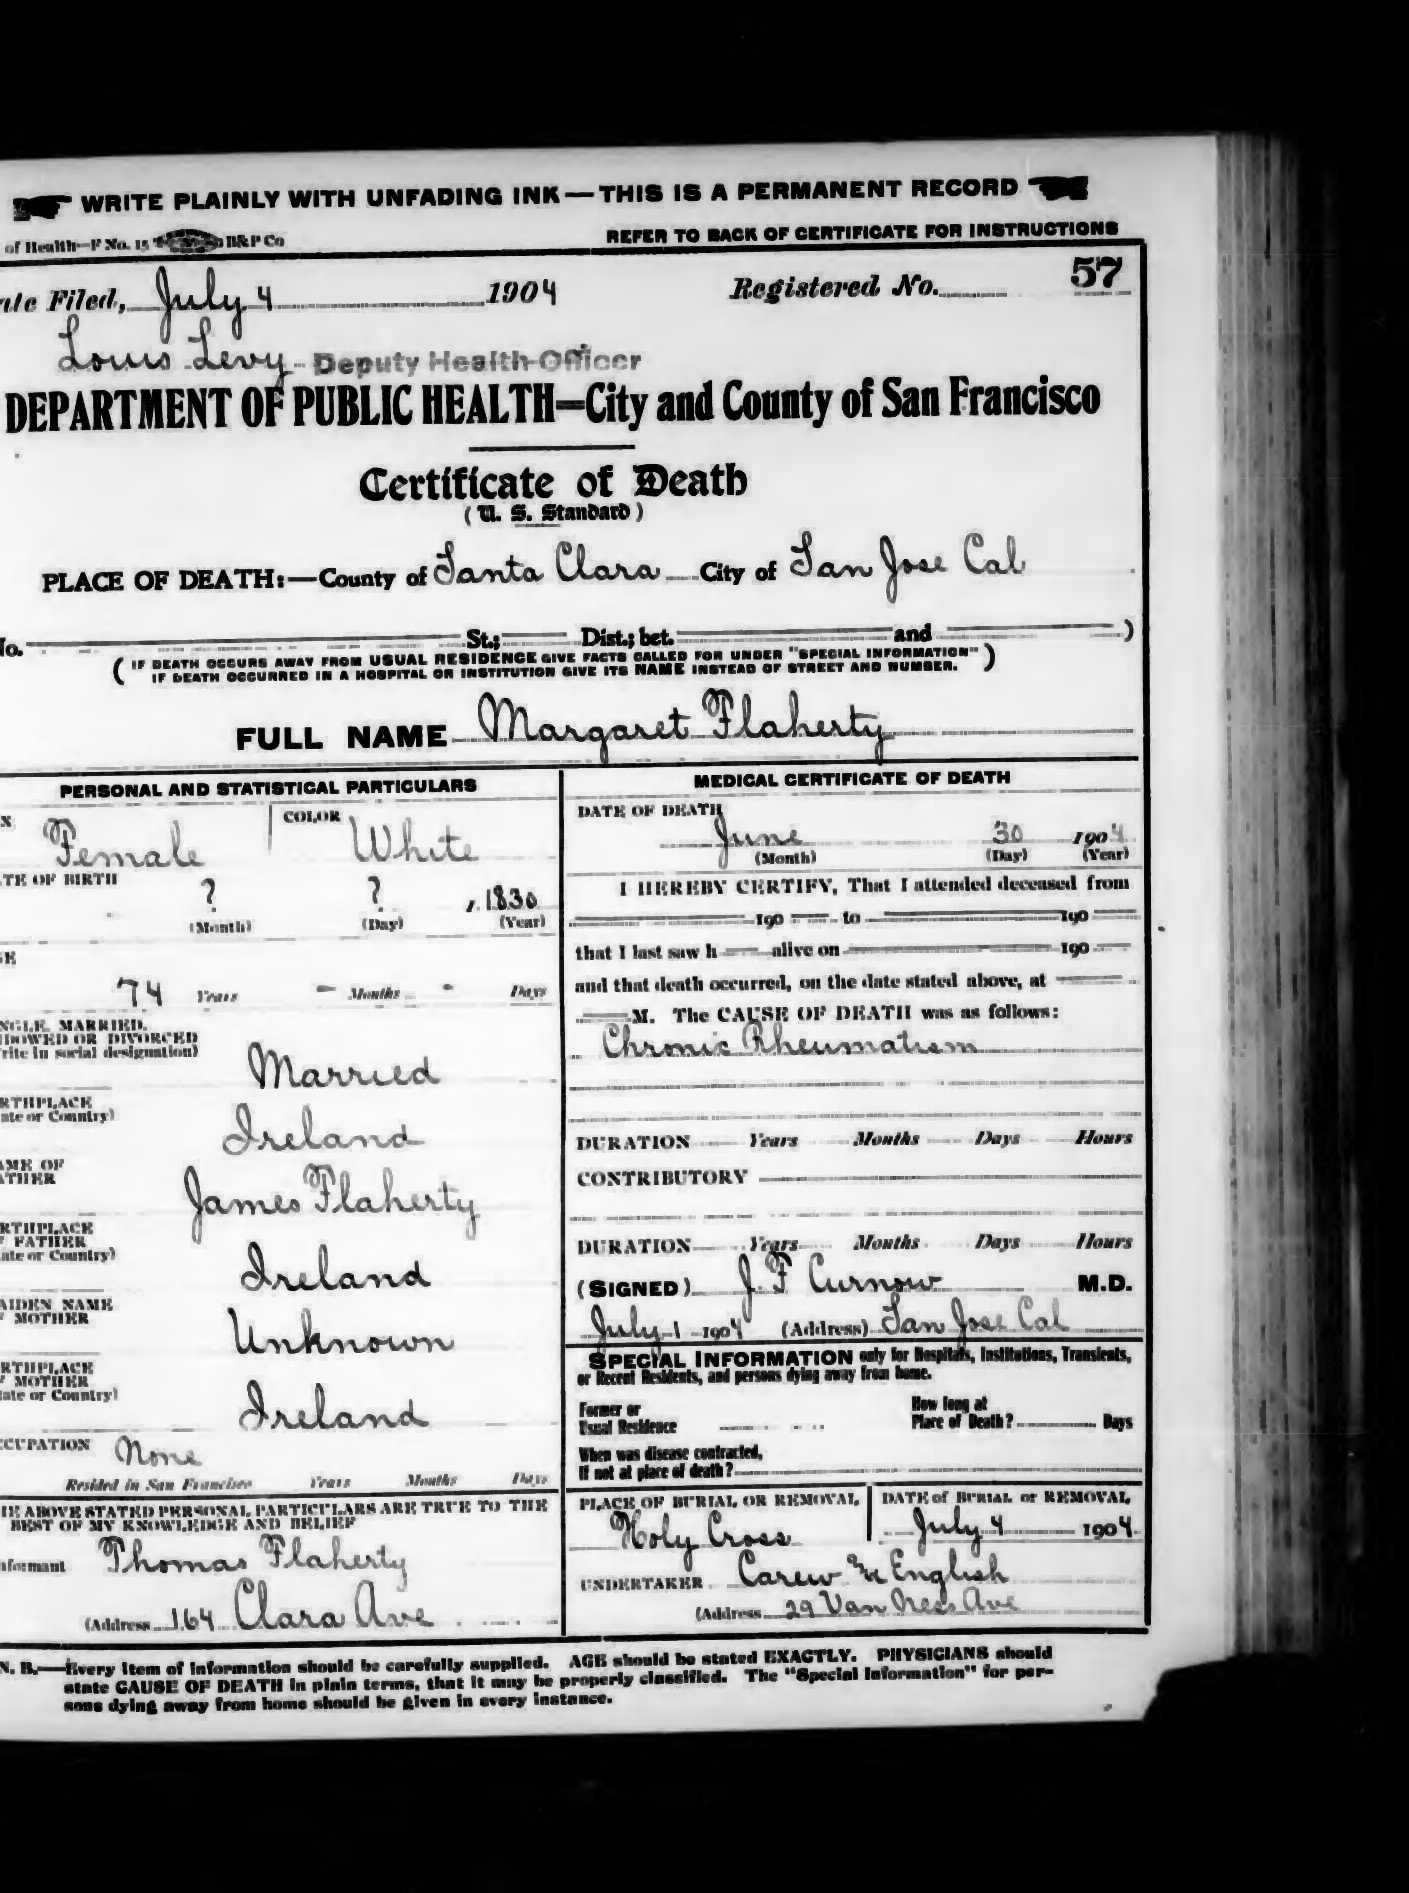 WRITE PLAINLY WITH UNFADING INK—THIS IS A PERMANENT RECORD
of Health—F No. 15 B&P Co
REFER TO BACK OF CERTIFICATE FOR INSTRUCTIONS
ate Filed, July 4 1904 Registered No. 57
Louis Levy Deputy Health Officer
DEPARTMENT OF PUBLIC HEALTH—City and County of San Francisco
Certificate of Death
(U. S. Standard)
PLACE OF DEATH:—County of Santa Clara City of San Jose Cal
No. St.; Dist.; bet. and )
( IF DEATH OCCURS AWAY FROM USUAL RESIDENCE GIVE FACTS CALLED FOR UNDER "SPECIAL INFORMATION" )
IF DEATH OCCURRED IN A HOSPITAL OR INSTITUTION GIVE ITS NAME INSTEAD OF STREET AND NUMBER.
FULL NAME Margaret Flaherty
PERSONAL AND STATISTICAL PARTICULARS
X Female COLOR White
TE OF BIRTH
? ? , 1830
(Month) (Day) (Year)
GE
74 Years - Months - Days
NGLE, MARRIED,
IDOWED OR DIVORCED
rite in social designation)
Married
RTHPLACE
ate or Country)
Ireland
AME OF
ATHER
James Flaherty
RTHPLACE
F FATHER
ate or Country)
Ireland
AIDEN NAME
F MOTHER
Unknown
RTHPLACE
F MOTHER
tate or Country)
Ireland
CCUPATION None
Resided in San Francisco Years Months Days
HE ABOVE STATED PERSONAL PARTICULARS ARE TRUE TO THE
BEST OF MY KNOWLEDGE AND BELIEF
nformant Thomas Flaherty
(Address 164 Clara Ave
MEDICAL CERTIFICATE OF DEATH
DATE OF DEATH
June 30 1904
(Month) (Day) (Year)
I HEREBY CERTIFY, That I attended deceased from
190 to 190
that I last saw h alive on 190
and that death occurred, on the date stated above, at
M. The CAUSE OF DEATH was as follows:
Chronic Rheumatism
DURATION Years Months Days Hours
CONTRIBUTORY
DURATION Years Months Days Hours
(SIGNED) J. F Curnow M.D.
July 1 1904 (Address) San Jose Cal
SPECIAL INFORMATION only for Hospitals, Institutions, Transients,
or Recent Residents, and persons dying away from home.
Former or
Usual Residence
How long at
Place of Death? Days
When was disease contracted,
If not at place of death?
PLACE OF BURIAL OR REMOVAL
Holy Cross
DATE of BURIAL or REMOVAL
July 4 1904
UNDERTAKER Carew & English
(Address 29 Van Ness Ave
N. B.—Every item of information should be carefully supplied. AGE should be stated EXACTLY. PHYSICIANS should
state CAUSE OF DEATH in plain terms, that it may be properly classified. The "Special Information" for per-
sons dying away from home should be given in every instance.